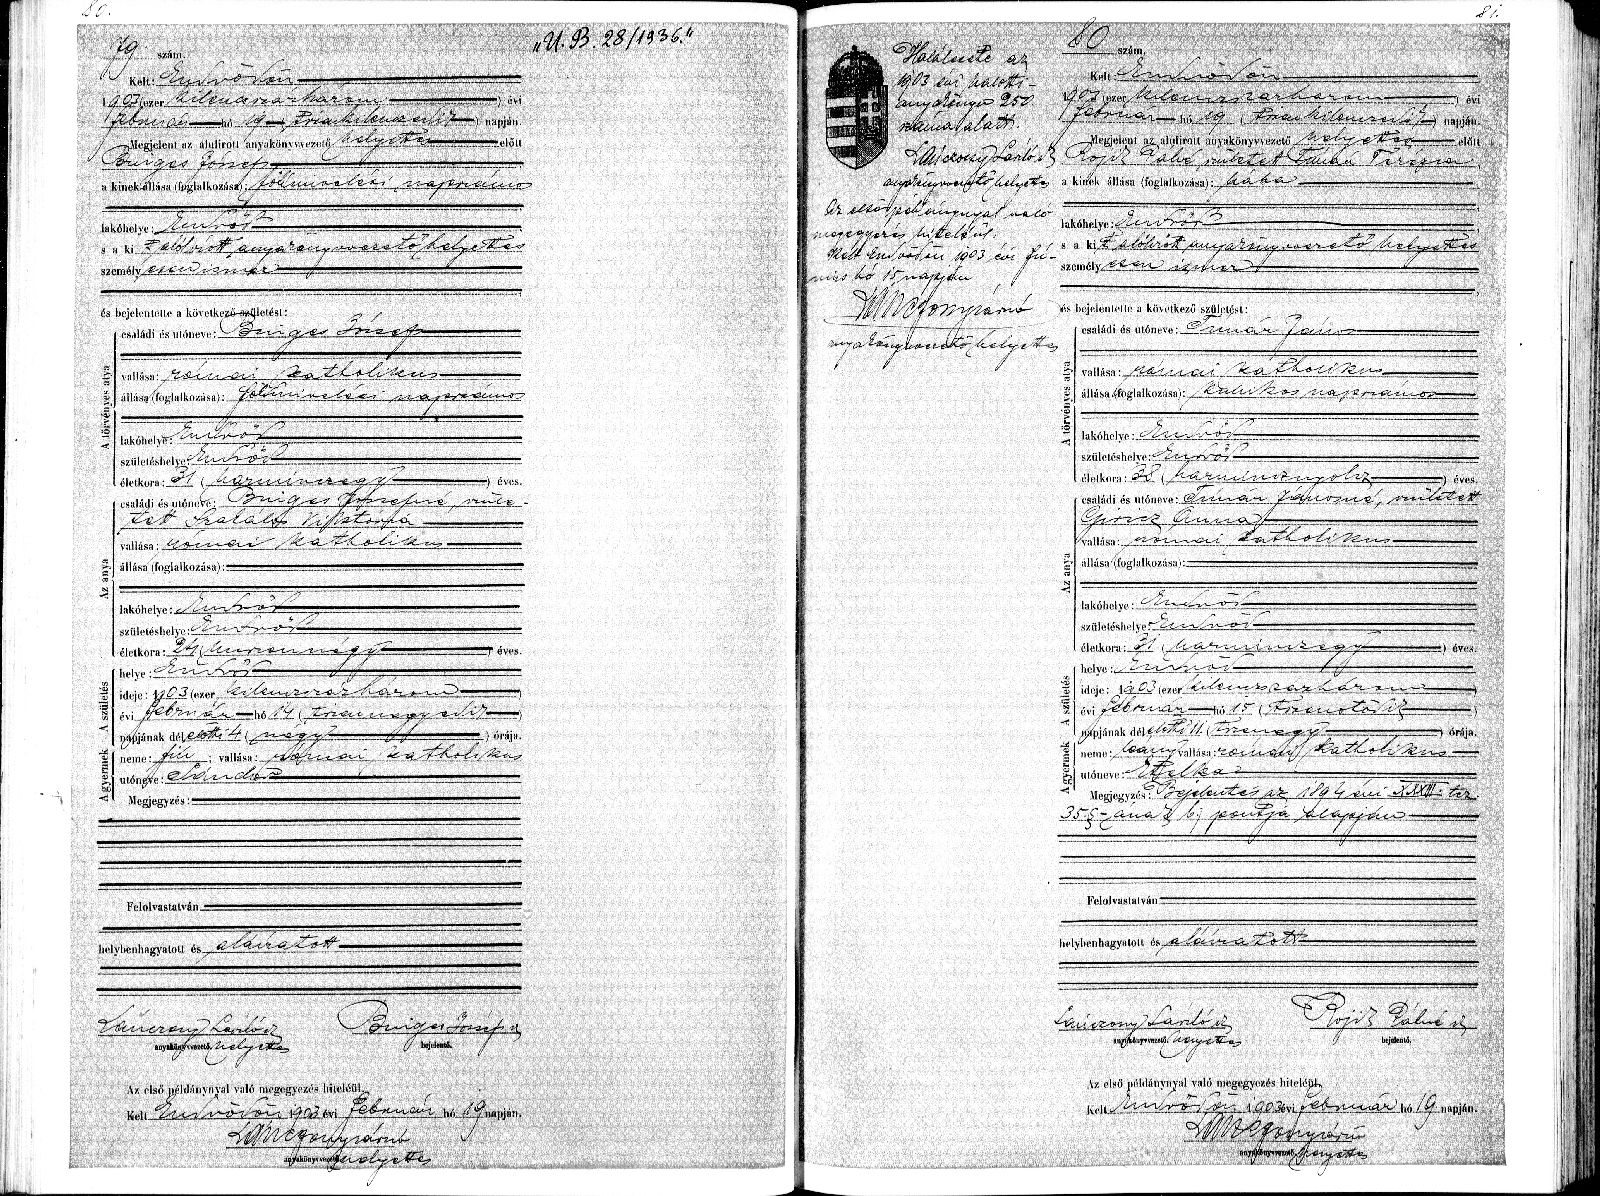 80.
79 szám.
„U. B. 28/1936."
Kelt: Endrődön
1903 (ezer kilencszázhárom) évi
február hó 19 (tizenkilencedik) napján.
Megjelent az alulirott anyakönyvvezető helyettes előtt
József
a kinek állása (foglalkozása): földmívelési napszámos
lakóhelye: Endrőd
s a kit alólirott anyakönyvvezető helyettes
személyesen ismer
és bejelentette a következő születést:
A törvényes atya
családi és utóneve: József
vallása: római katholikus
állása (foglalkozása): földmívelési napszámos
lakóhelye: Endrőd
születéshelye: Endrőd
életkora: 31 (harminczegy) éves.
Az anya
családi és utóneve: Józsefné, szüle-
tett Viktória
vallása: római katholikus
állása (foglalkozása):
lakóhelye: Endrőd
születéshelye: Endrőd
életkora: 24 (huszonnégy) éves.
A születés
helye: Endrőd
ideje: 1903 (ezer kilenczszázhárom)
évi február hó 14 (tizennegyedik)
napjának dél előtti 4 (négy) órája.
A gyermek
neme: fiú; vallása: római katholikus
utóneve: Sándor
Megjegyzés:
Felolvastatván
helybenhagyatott és aláíratott
László
anyakönyvvezető. helyettes
József
bejelentő.
Az első példánynyal való megegyezés hiteléül.
Kelt Endrődön 1903 évi február hó 19 napján.
anyakönyvvezető helyettes
81.
Halálesete az
1903 évi halotti
anyakönyv 250
száma alatt.
László
anyakönyvvezető helyettes
Az első példánynyal való
megegyezés hiteléül.
Kelt Endrődön 1903 évi jú-
hó 15 napján
anyakönyvvezető helyettes
80 szám.
Kelt Endrődön
1903 (ezer kilenczszázhárom) évi
február hó 19 (tizenkilenczedik) napján.
Megjelent az alulirott anyakönyvvezető helyettes előtt
Rojik Pálné, született Terézia
a kinek állása (foglalkozása): bába
lakóhelye: Endrőd
s a kit alólirott anyakönyvvezető helyettes
személyesen ismer
és bejelentette a következő születést:
A törvényes atya
családi és utóneve: Timár János
vallása: római katholikus
állása (foglalkozása): kubikos napszámos
lakóhelye: Endrőd
születéshelye: Endrőd
életkora: 38 (harmincznyolcz) éves.
Az anya
családi és utóneve: Timár Jánosné, született
Giricz Anna
vallása: római katholikus
állása (foglalkozása):
lakóhelye: Endrőd
születéshelye: Endrőd
életkora: 31 (harminczegy) éves.
A születés
helye: Endrőd
ideje: 1903 (ezer kilenczszázhárom)
évi február hó 15 (tizenötödik)
napjának dél előtti 11 (tizenegy) órája.
A gyermek
neme: leány; vallása: római katholikus
utóneve: Etelka
Megjegyzés: Bejelentés az 1894 évi XXXIII. tcz
35 §-ának b) pontja alapján
Felolvastatván
helybenhagyatott és aláíratott
László
anyakönyvvezető. helyettes
Rojik Pálné
bejelentő.
Az első példánynyal való megegyezés hiteléül.
Kelt Endrődön 1903 évi február hó 19 napján.
anyakönyvvezető helyettes